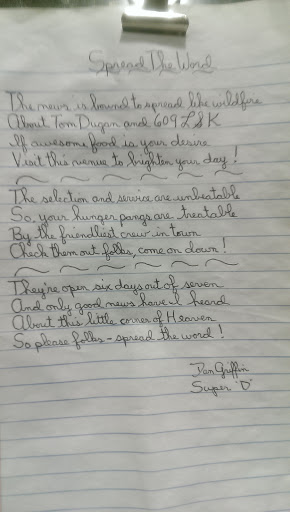 Spread The Word
The news is bound to spread like wildfire
About Tom Dugan and 609 L S K
If awesome food is your desire
Visit this venue to brighten your day!
The selection and service are unbeatable
So, your hunger pangs are treatable
By the friendliest crew in town
Check them out folks, come on down!
They're open six days out of seven
And only good news have I heard
About this little corner of Heaven
So please folks - spread the word!
Dan Griffin
Super "D"